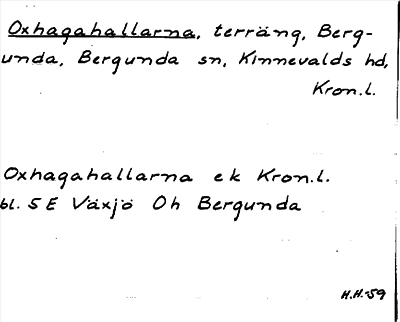 Oxhagahallarna, terräng, Berg-
unda, Bergunda sn, Kinnevalds hd,
Kron.l.
Oxhagahallarna ek Kron.l.
bl. 5 E Växjö Oh Bergunda
H.H.-59